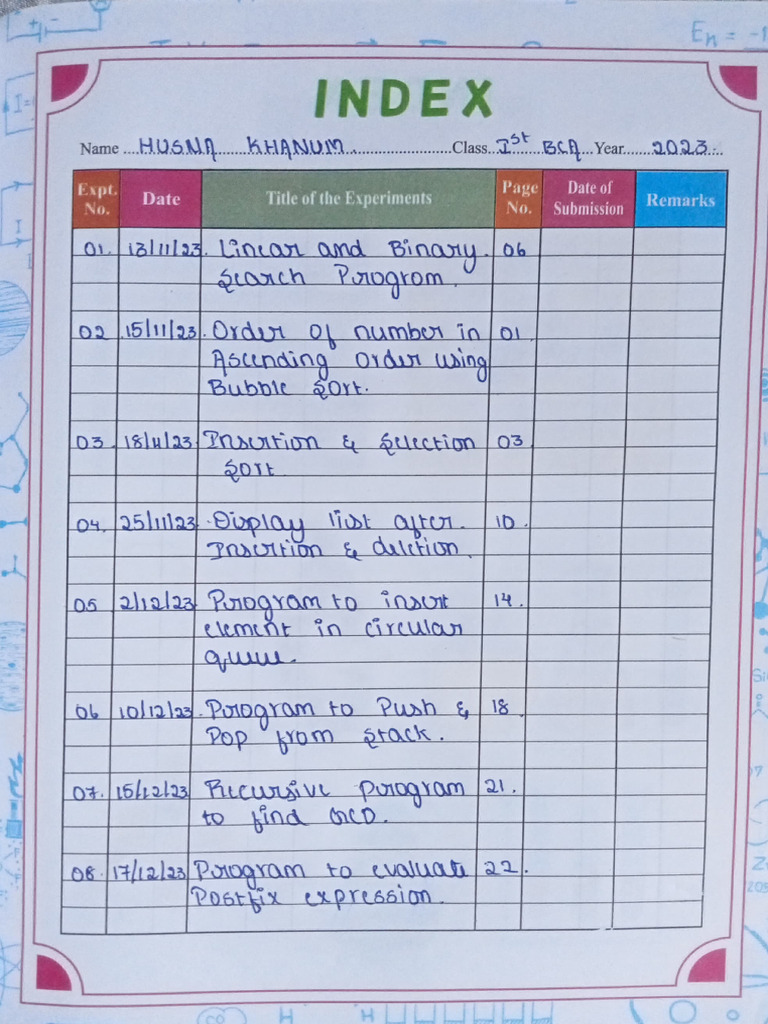 En = -1
INDEX
Name HUSNA KHANUM. Class. Ist BCA Year 2023
Expt. No. Date Title of the Experiments Page No. Date of Submission Remarks
01. 13/11/23. Linear and Binary. 06
Search Program.
02 15/11/23. Order of number in 01.
Ascending order using
Bubble Sort.
03. 18/11/23. Insertion & Selection 03
Sort
04. 25/11/23. Display list after. 10.
Insertion & deletion.
05 2/12/23 Program to insert 14.
element in circular
queue.
06 10/12/23. Program to Push & 18.
Pop from Stack.
07. 15/12/23 Recursive program 21.
to find GCD.
08. 17/12/23 Program to evaluate 22.
Postfix expression.